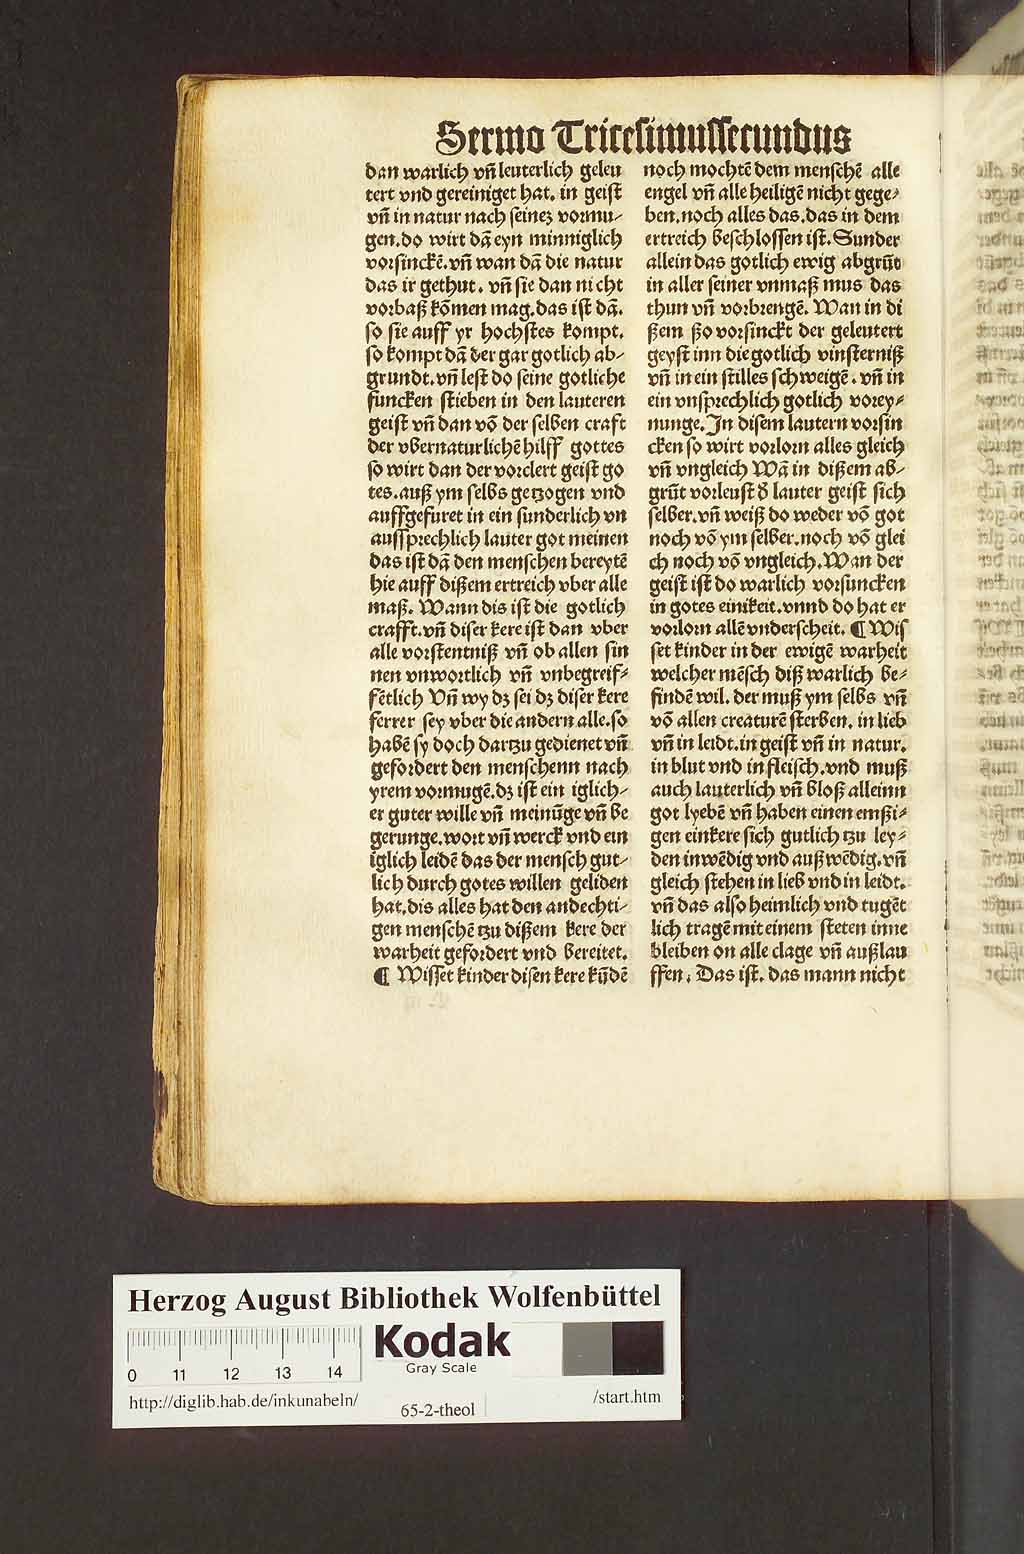 Sermo Tricesimussecundus
dan warlich vñ leuterlich geleu
tert vnd gereiniget hat. in geist
vñ in natur nach seineʒ vormu-
gen. do wirt dā eyn minniglich
vorsinckē. vñ wan dā die natur
das ir gethut. vñ sie dan nicht
vorbaß kōmen mag. das ist dā.
so sie auff yr hochstes kompt.
so kompt dā der gar gotlich ab-
grundt. vñ lest do seine gotliche
funcken stieben in den lauteren
geist vñ dan vō der selben craft
der vbernaturlichē hilff gottes
so wirt dan der vorclert geist go
tes. auß ym selbs getzogen vnd
auffgefuret in ein sunderlich vn
aussprechlich lauter got meinen
das ist dā den menschen bereytē
hie auff dißem ertreich vber alle
maß. Wann dis ist die gotlich
crafft. vñ diser kere ist dan vber
alle vorstentniß vñ ob allen sin
nen vnwortlich vñ vnbegreif-
fētlich Vñ wy dʒ sei dʒ diser kere
ferrer sey vber die andern alle. so
habē sy doch dartzu gedienet vñ
gefordert den menschenn nach
yrem vormugē. dʒ ist ein iglich-
er guter wille vñ meinūge vñ be
gerunge. wort vñ werck vnd ein
iglich leidē das der mensch gut-
lich durch gotes willen geliden
hat. dis alles hat den andechti-
gen menschē tzu dißem kere der
warheit gefordert vnd bereitet.
¶ Wisset kinder disen kere kūdē
noch mochtē dem menschē alle
engel vñ alle heiligē nicht gege-
ben. noch alles das. das in dem
ertreich beschlossen ist. Sunder
allein das gotlich ewig abgrūt
in aller seiner vnmaß mus das
thun vñ vorbrengē. Wan in di
ßem ßo vorsinckt der geleutert
geyst inn die gotlich vinsterniß
vñ in ein stilles schweigē. vñ in
ein vnsprechlich gotlich vorey-
nunge. In disem lautern vorsin
cken so wirt vorlorn alles gleich
vñ vngleich Wā in dißem ab-
grūt vorleust d̕ lauter geist sich
selber. vñ weiß do weder vō got
noch vō ym selber. noch vō glei
ch noch vō vngleich. Wan der
geist ist do warlich vorsuncken
in gotes einikeit. vnnd do hat er
vorlorn allē vnderscheit. ¶ Wis
set kinder in der ewigē warheit
welcher mēsch diß warlich be-
findē wil. der muß ym selbs vñ
vō allen creaturē sterben. in lieb
vñ in leidt. in geist vñ in natur.
in blut vnd in fleisch. vnd muß
auch lauterlich vñ bloß alleinn
got lyebē vñ haben einen emßi-
gen einkere sich gutlich tzu ley-
den inwēdig vnd außwēdig. vñ
gleich stehen in lieb vnd in leidt.
vñ das also heimlich vnd tugēt
lich tragē mit einem steten inne
bleiben on alle clage vñ außlau
ffen. Das ist. das mann nicht
Herzog August Bibliothek Wolfenbüttel
Kodak
Gray Scale
0 11 12 13 14
http://diglib.hab.de/inkunabeln/
65-2-theol
/start.htm